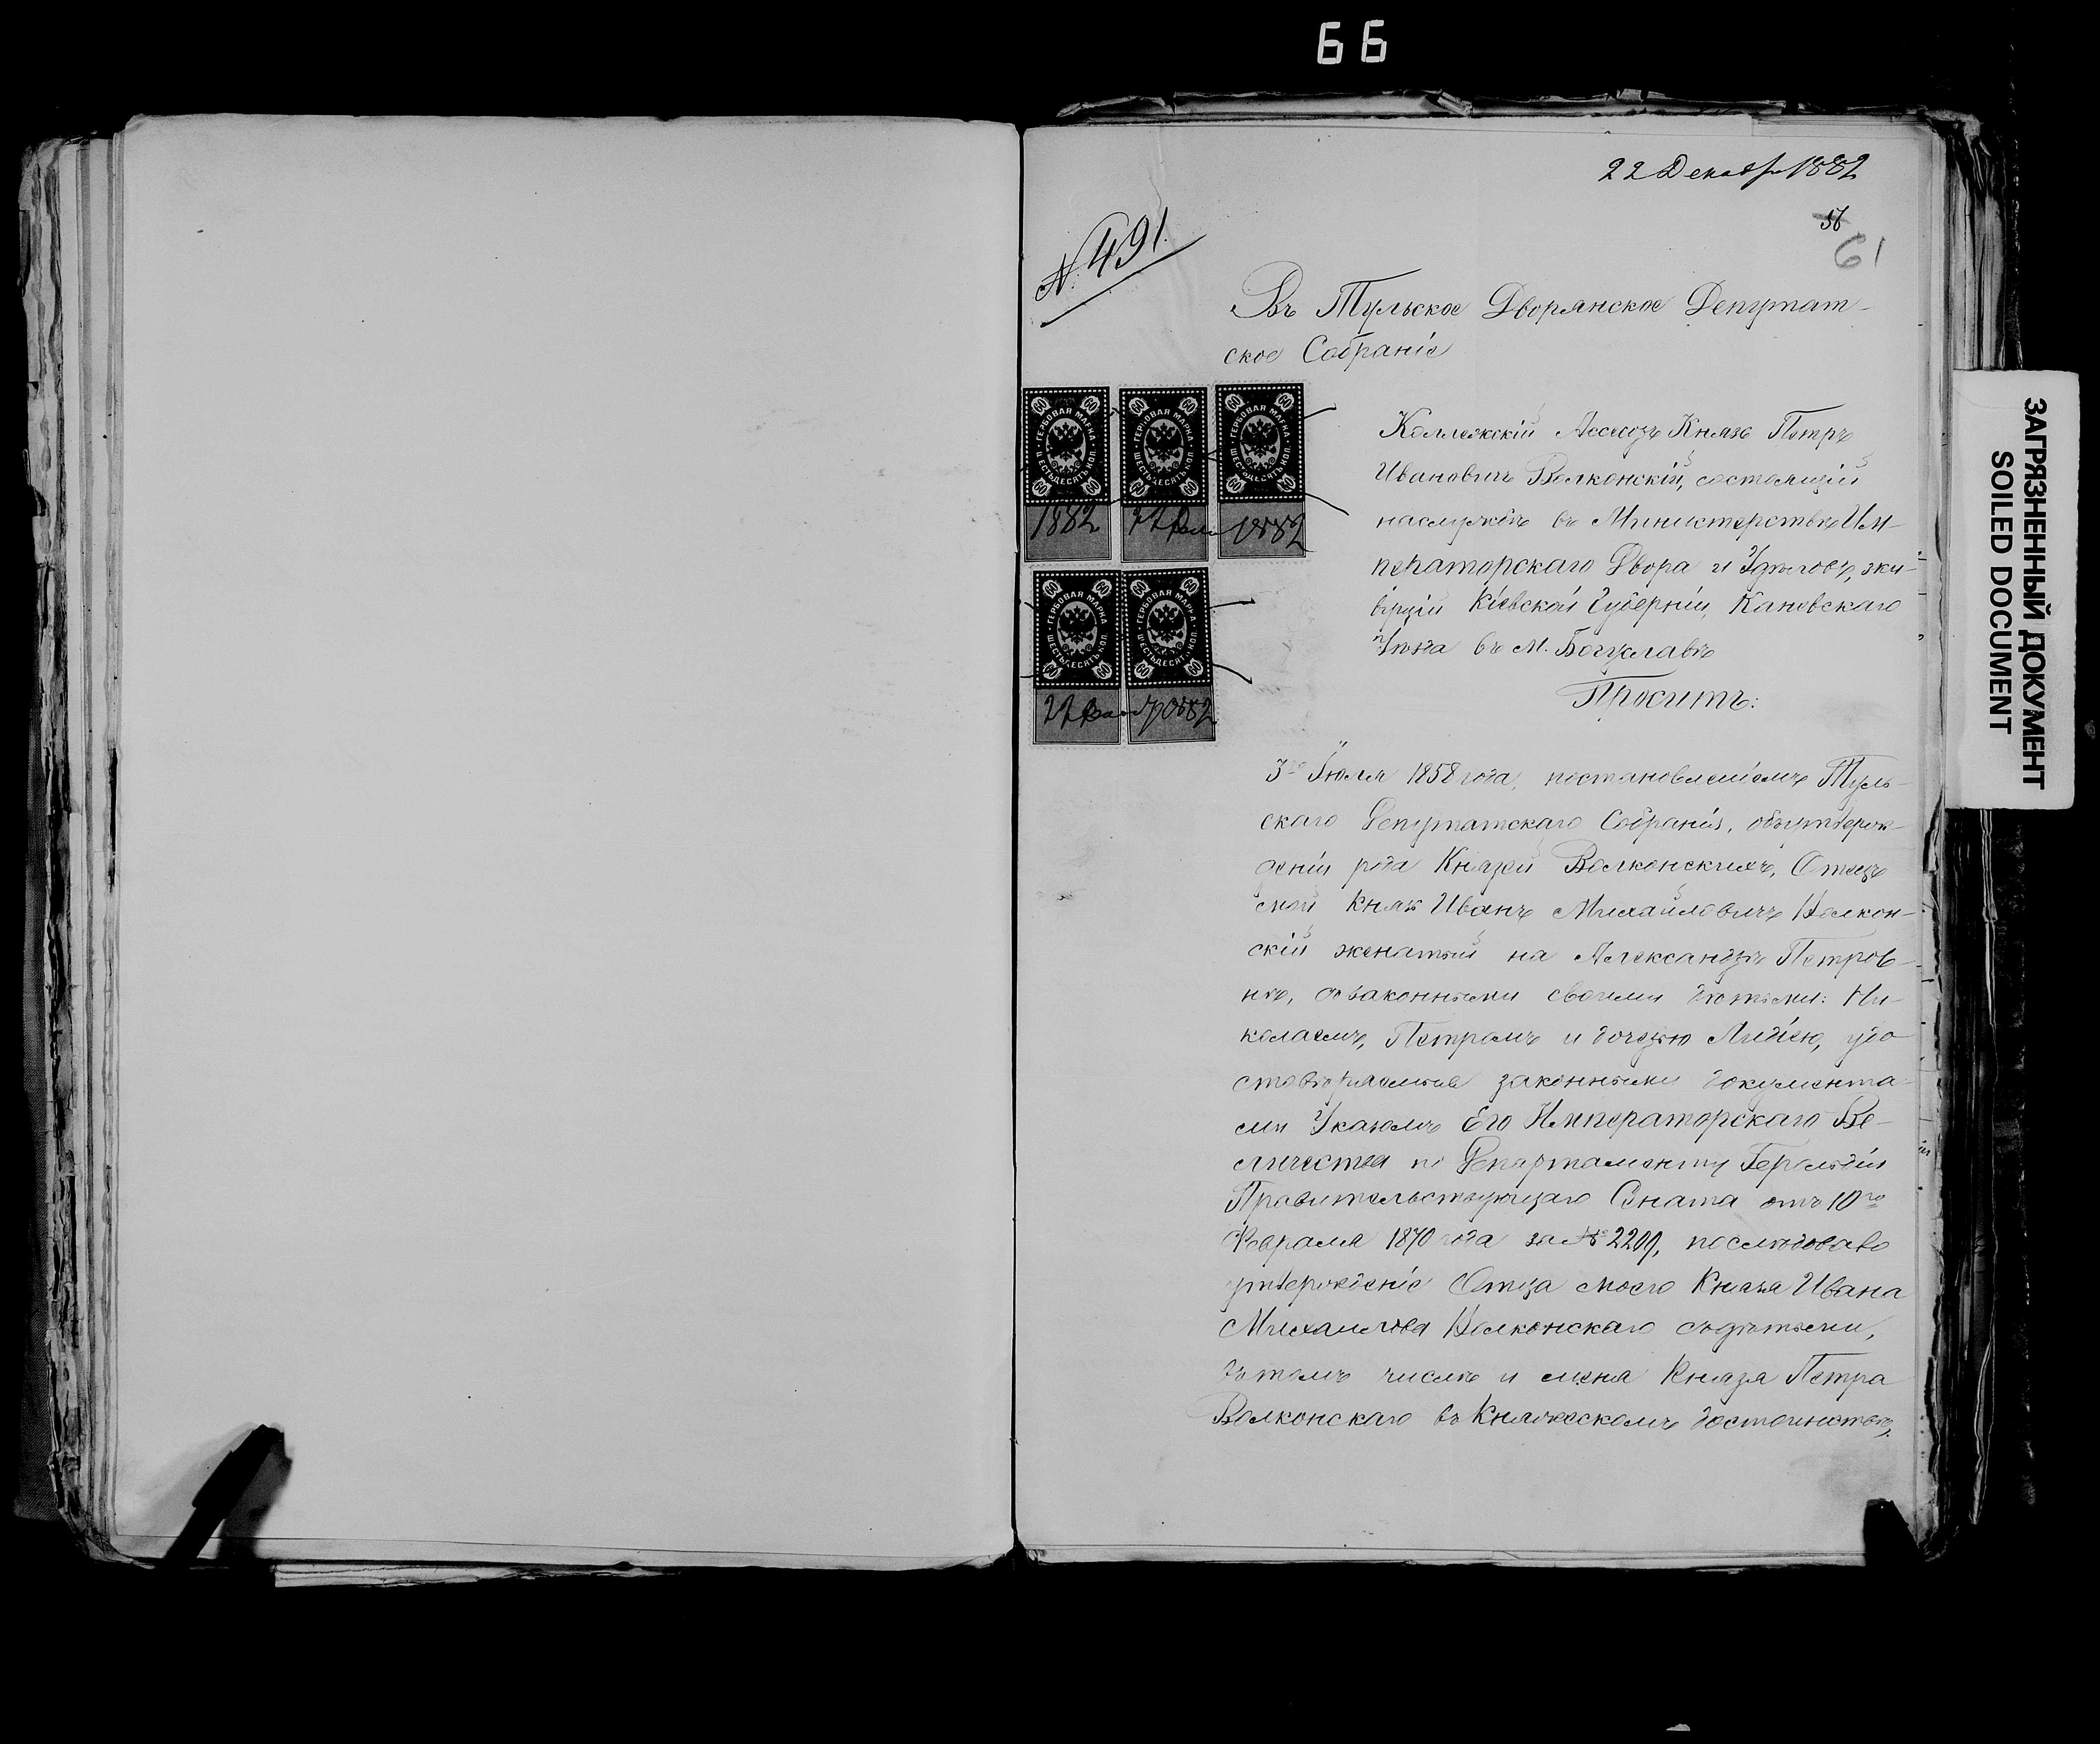 66
22 Декабр 1882
56
61
№ 491.
Въ Тульское Дворянское Депутат-
ское Собраніе
ГЕРБОВАЯ МАРКА ШЕСТЬДЕСЯТЬ КОП. 60
ГЕРБОВАЯ МАРКА ШЕСТЬДЕСЯТЬ КОП. 60
ГЕРБОВАЯ МАРКА ШЕСТЬДЕСЯТЬ КОП. 60
1882 22 1882
ГЕРБОВАЯ МАРКА ШЕСТЬДЕСЯТЬ КОП. 60
ГЕРБОВАЯ МАРКА ШЕСТЬДЕСЯТЬ КОП. 60
22 1882
Коллежскій Ассесоръ Князь Петръ
Ивановичъ Волконскій, состоящій
наслужбѣ въ Министерствѣ Им-
ператорскаго Двора и Удѣловъ, жи-
вущій Кіевской Губерніи, Каневскаго
Уѣзда въ м. Богуславѣ
Проситъ:
3го Іюля 1858 года, постановленіемъ Туль-
скаго Депутатскаго Собранія, объутверж-
деніи рода Князей Волконскихъ, Отецъ
мой Князь Иванъ Михайловичъ Волкон-
скій женатый на Александрѣ Петров-
нѣ, съзаконными своими дѣтьми: Ни-
колаемъ, Петромъ и дочерью Лидіею, удо-
стовѣряемые законными документа-
ми Указомъ Его Императорскаго Ве-
личества по Департаменту Герольдіи
Правительствующаго Сената отъ 10го
Февраля 1870 года за № 2209, послѣдовало
утвержденіе Отца моего Князя Ивана
Михайлова Волконскаго съдѣтьми,
вътомъ числѣ и меня Князя Петра
Волконскаго въ Княжескомъ достоинствѣ,
ЗАГРЯЗНЕННЫЙ ДОКУМЕНТ
SOILED DOCUMENT